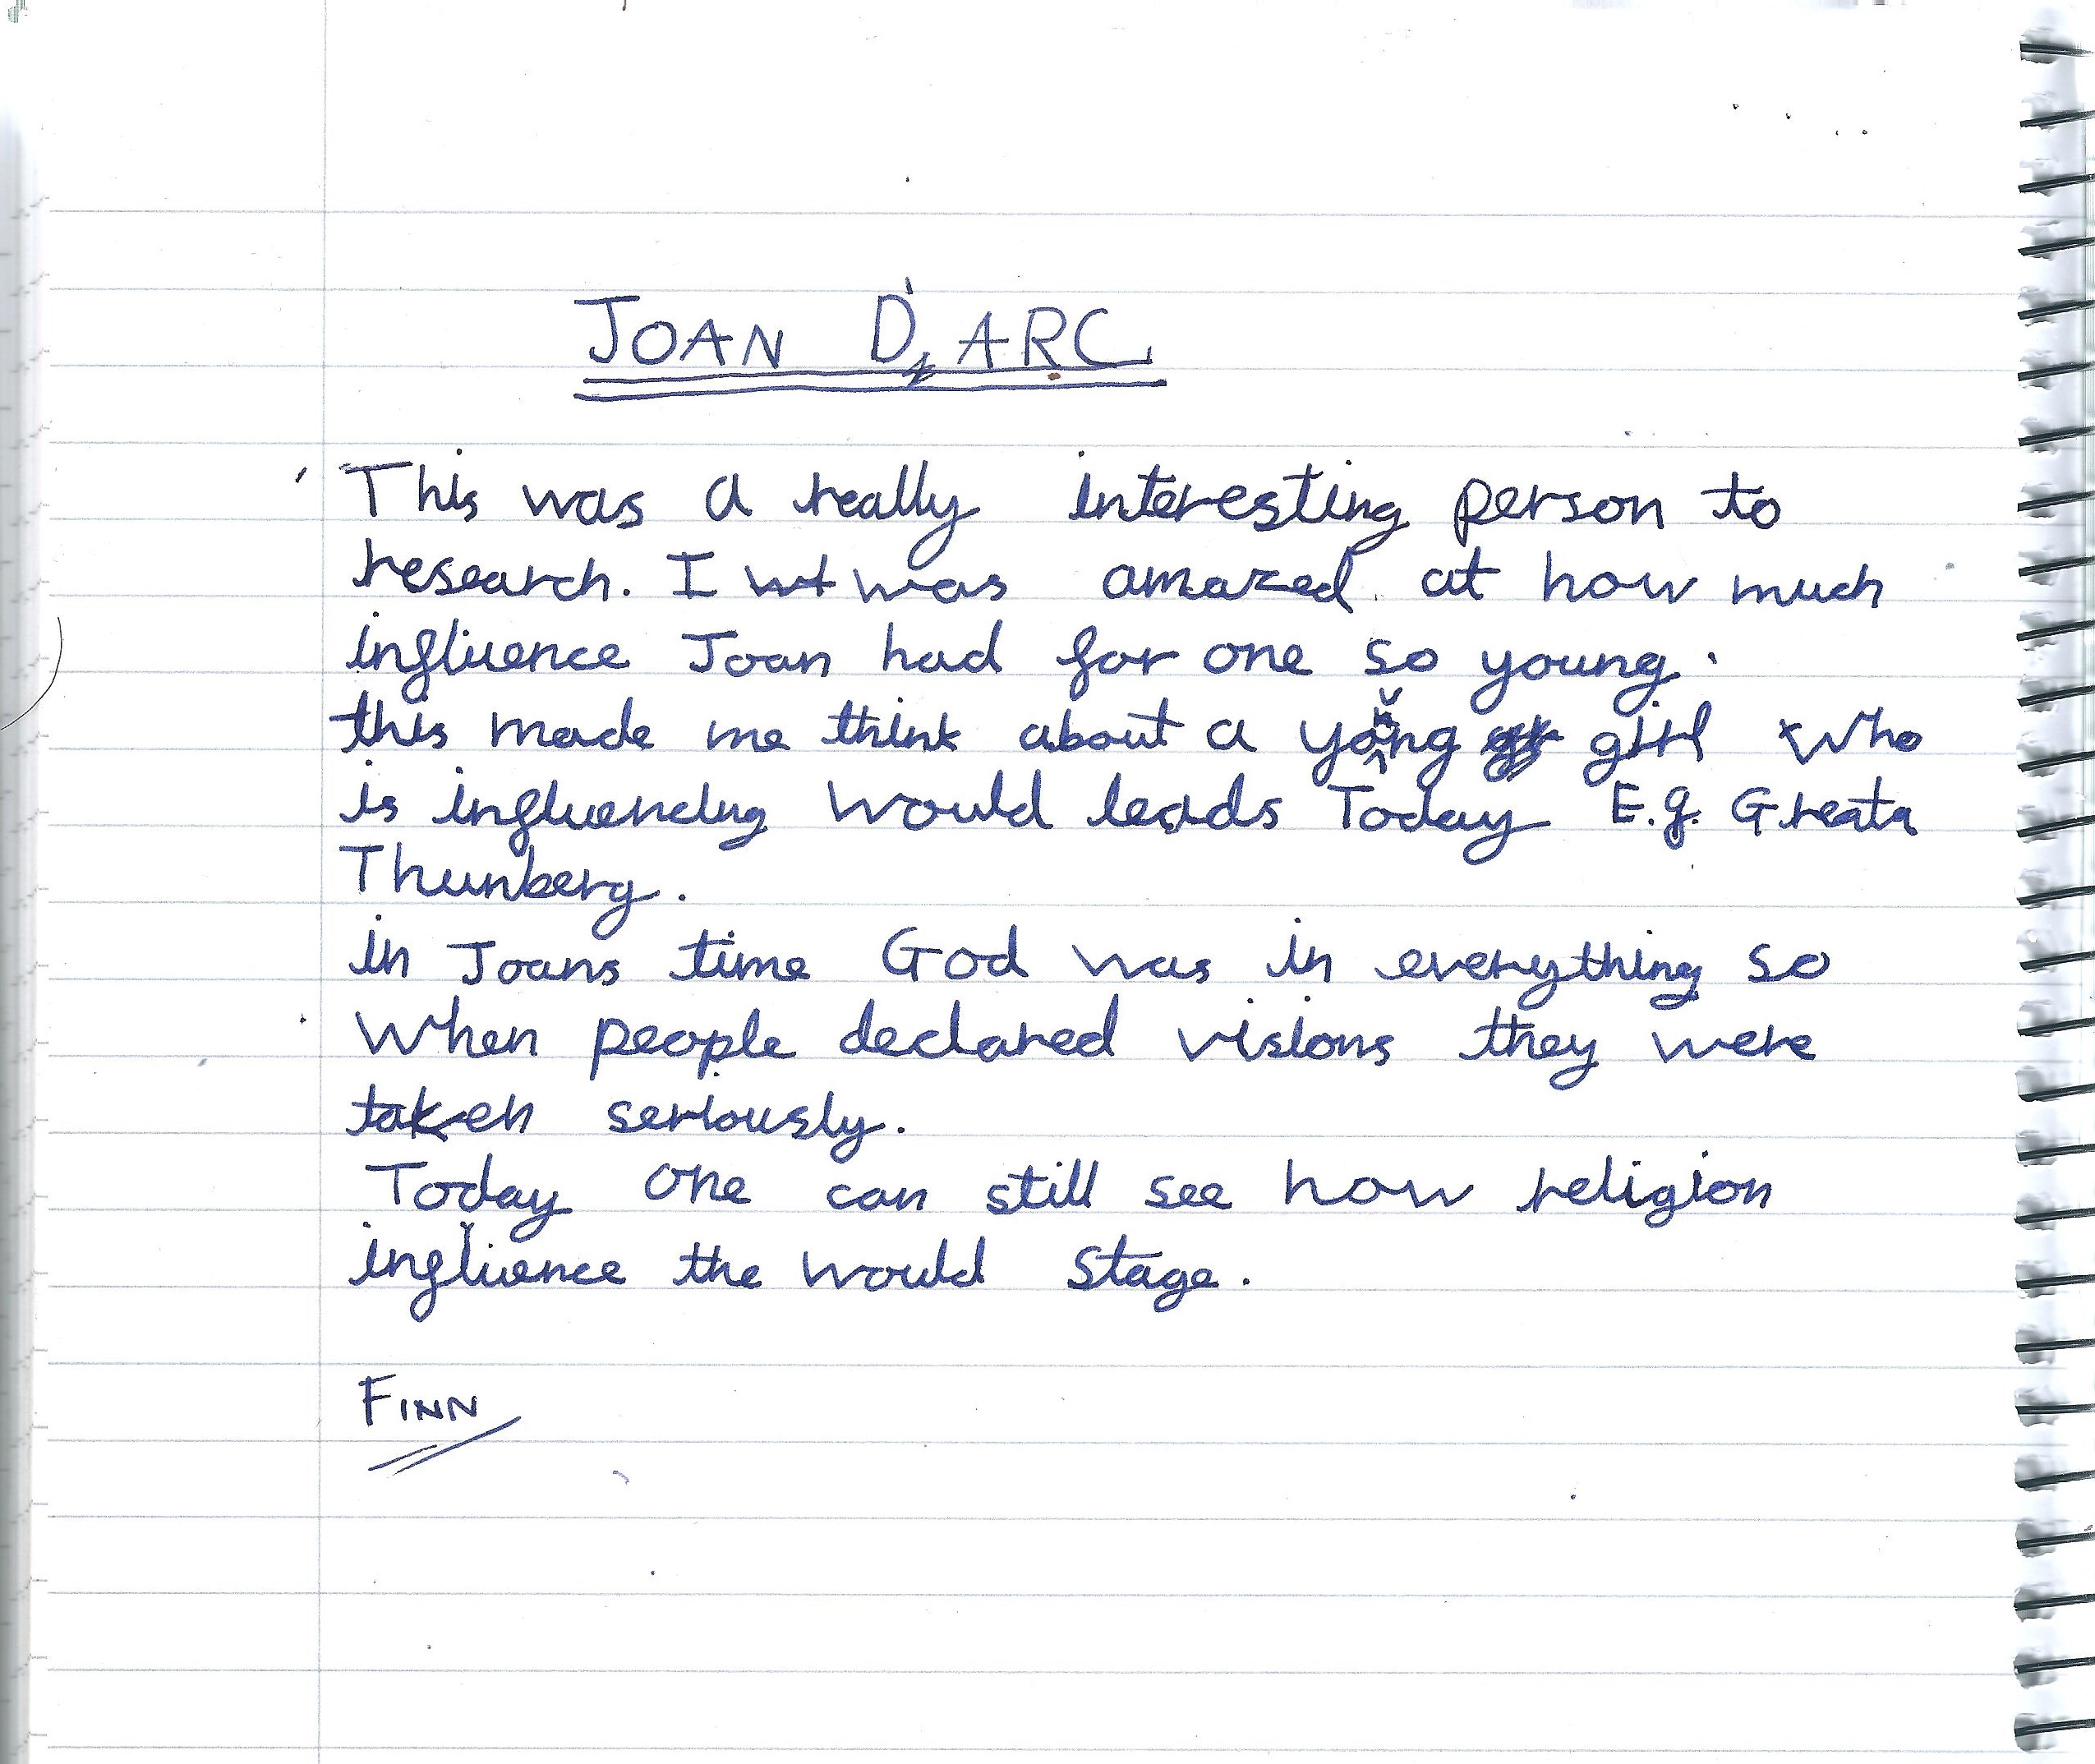 JOAN D'ARC
This was a really interesting person to
research. I was amazed at how much
influence Joan had for one so young.
this made me think about a young girl who
is influencing would leads Today E.g. Greata
Thunberg.
in Joans time God was in everything so
when people declared visions they were
taken seriously.
Today one can still see how religion
influence the would stage.
FINN